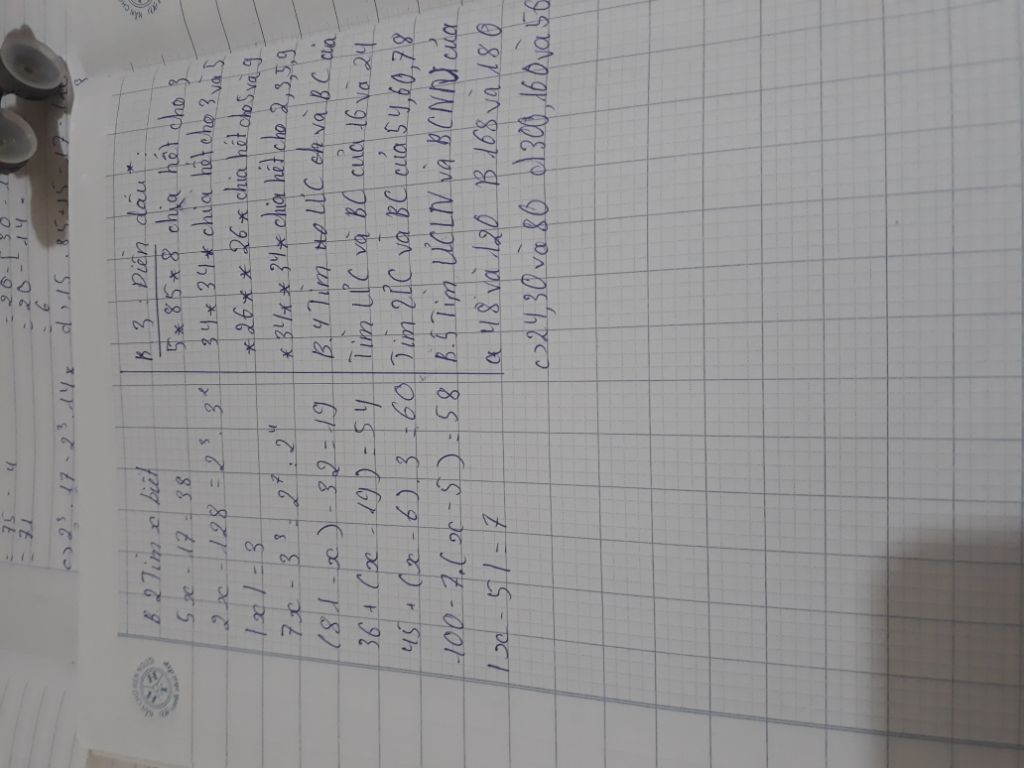 = 75 - 4
= 71
= 20 - [ 30 -
= 20 - 14
= 6
c > 2³ . 17 - 2³ . 14
B 2 Tìm x biết
5 x - 17 = 38
2 x - 128 = 2³ . 3²
| x | = 3
7x - 3³ = 2⁷ : 2⁴
( 81 - x ) - 32 = 19
36 + ( x - 19 ) = 54
45 + ( x - 6 ) . 3 = 60
100 - 7 ( x - 5 ) = 58
| x - 5 | = 7
B 3 Điền dấu * :
5*8 5*8 chia hết cho 3
34* 34* chia hết cho 3 và 5
*26* *26* chia hết cho 5 và 9
*34* *34* chia hết cho 2,3,5,9
B.4 Tìm ƯC và BC của
Tìm ƯC và BC của 16 và 24
Tìm ƯC và BC của 54,60,78
B.5 Tìm ƯCLN và BCNN của
a 48 và 120 B 168 và 180
c > 24,30 và 80 d ) 300, 160 và 56